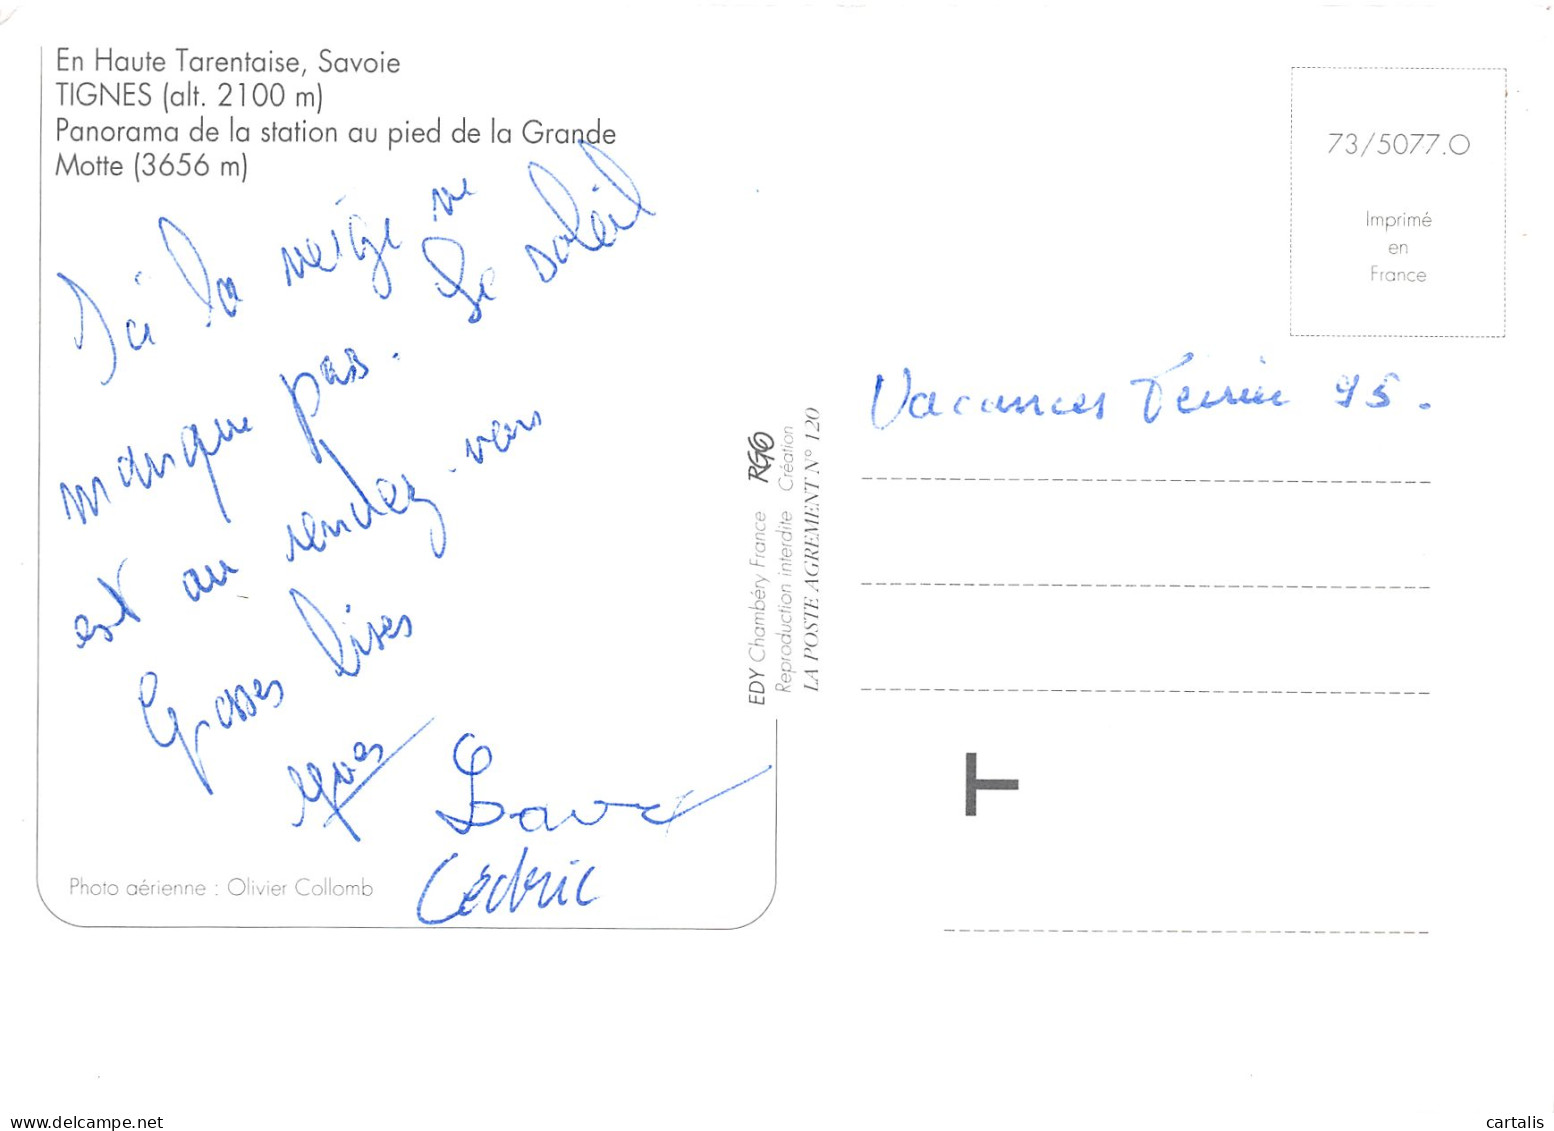 En Haute Tarentaise, Savoie
TIGNES (alt. 2100 m)
Panorama de la station au pied de la Grande
Motte (3656 m)
Ici la neige ne
manque pas. Le soleil
est au rendez-vous
Grosses bises
Cédric
Photo aérienne : Olivier Collomb
EDY Chambéry France
Reproduction interdite Création
LA POSTE AGREMENT N° 120
73/5077.O
Imprimé
en
France
Vacances Février 95.
T
www.delcampe.net
cartalis